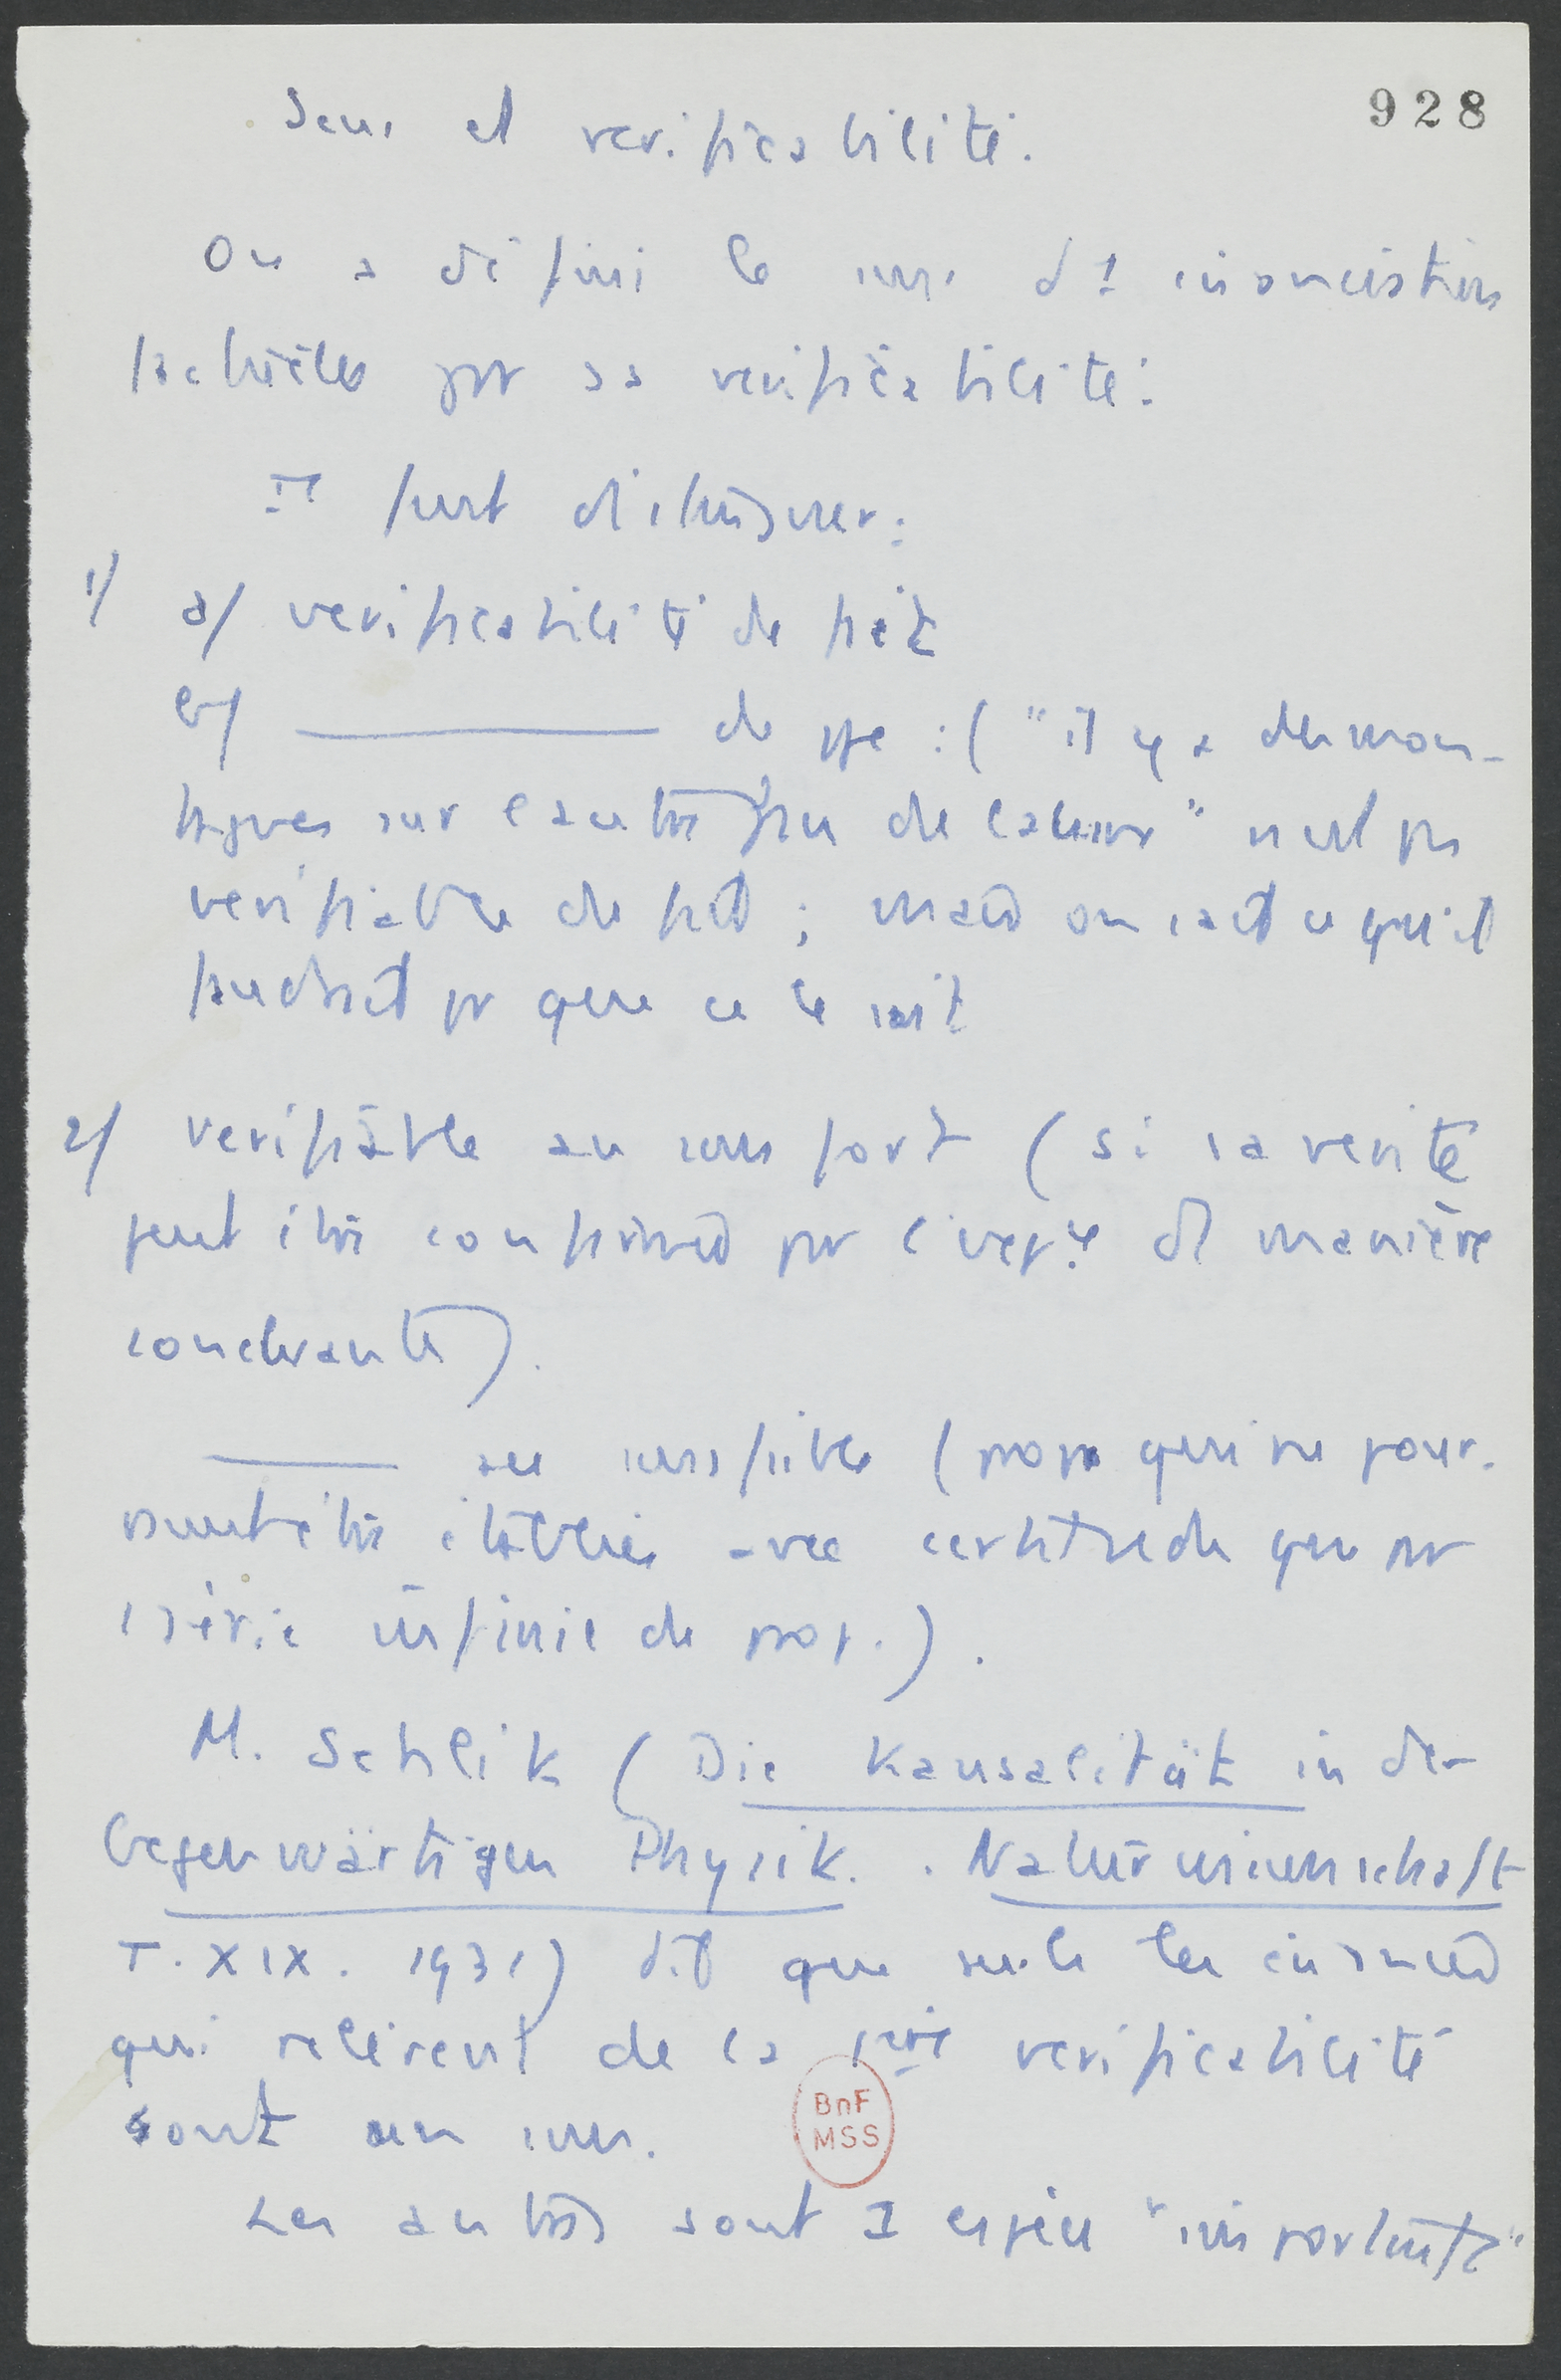 928
Sens et verificabilité.
On a défini le sens d'1 énonciation
factuelle par sa verificabilité.
Il faut distinguer:
1/ a/ verificabilité de fait
b/ ——— de ppe : ("il y a des mon-
tagnes sur l'autre face de la lune" n'est pas
verifiable de fait ; mais on sait ce qu'il
faudrait pr que ce le soit
2/ verifiable au sens fort (si sa verité
peut être confirmée par l'exp.ce d manière
concluante).
——— au sens faible (prop qui ne pour-
raient être établies avec certitude que par
1 série infinie de prop.).
M. Schlik (Die Kausalität in der
Gegenwärtigen Physik. . Naturwissenschaft
T. XIX. 1931) dit que seuls les énoncés
qui relèvent de la 1ère verificabilité
sont un sens.
BnF
MSS
Les autres sont 1 espèce "importante"